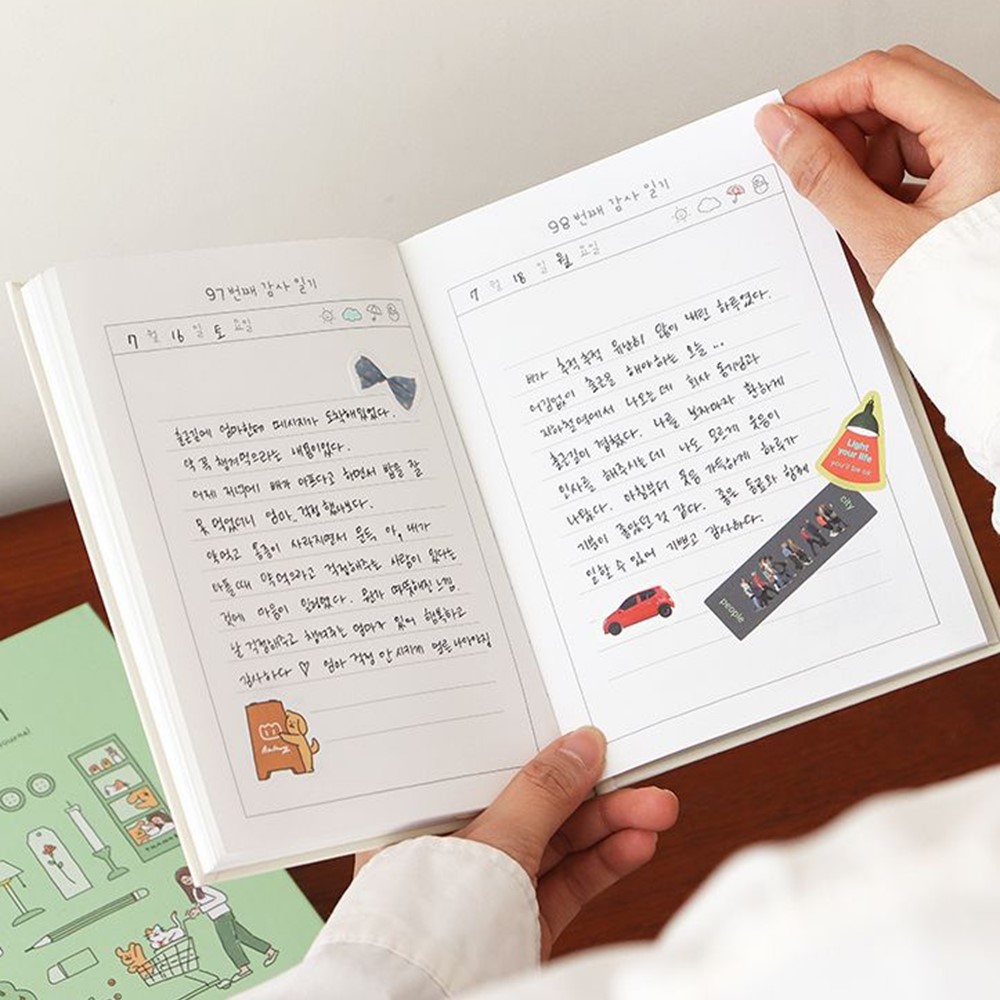 97번째 감사 일기
7 월 16 일 토 요일
출근길에 엄마한테 메시지가 도착해있었다.
약 꼭 챙겨먹으라는 내용이었다.
어제 저녁에 배가 아프다고 하면서 밥을 잘
못 먹었더니 엄마.. 걱정 했나보다.
약먹고 통증이 사라지면서 문득, 아, 내가
아플 때 약먹으라고 걱정해주는 사람이 있다는
것에 마음이 일렁였다. 뭔가 따뜻해진 느낌.
날 걱정해주고 챙겨주는 엄마가 있어 행복하고
감사하다 ♡ 엄마 걱정 안 시키게 얼른 나아야징
98번째 감사 일기
7 월 18 일 월 요일
비가 축적축적 유난히 많이 내린 하루였다.
어김없이 출근을 해야하는 오늘...
지하철역에서 나오는데 회사 동기님과
출근길이 겹쳤다. 나를 보자마자 환하게
인사를 해주시는데 나도 모르게 웃음이
나왔다. 아침부터 웃음 가득하게 하루가
기분이 좋았던 것 같다. 좋은 동료와 함께
일할 수 있어 기쁘고 감사하다.
Light
your life
you'll be ok
city
people